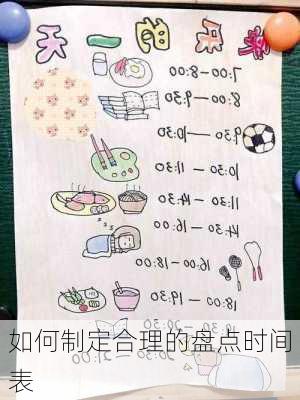 快乐的一天
7:00-8:00
8:00-9:30
9:30-10:30
10:30-11:30
11:30-14:30
14:30-16:00
16:00-18:00
18:00-19:30
如何制定合理的盘点时间
表